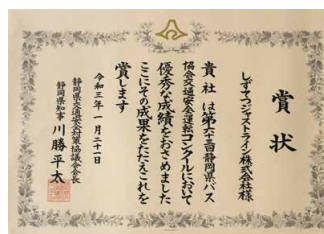 賞状
しずてつジャストライン株式会社様
貴社は第六十三回静岡県バス
協会交通安全運転コンクールにおいて
優秀な成績をおさめました
ここにその成果をたたえこれを
賞します
令和三年一月二十一日
静岡県交通安全対策協議会会長
静岡県知事 川勝平太